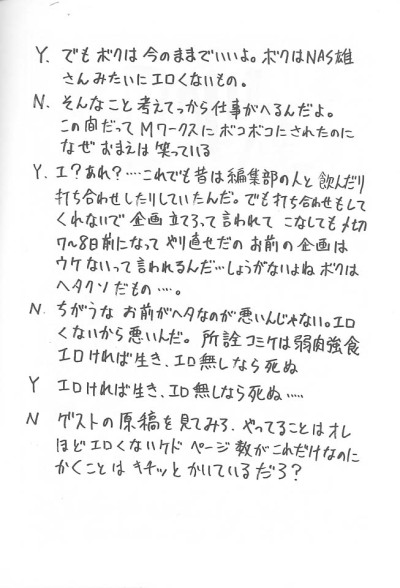 Y. でもボクは今のままでいいよ。ボクはNAS雄
さんみたいにエロくないもの。
N. そんなこと考えてっから仕事がへるんだよ。
この間だってMワークスにボコボコにされたのに
なぜおまえは笑っている
Y. エ?あれ?‥‥これでも昔は編集部の人と飲んだり
打ち合わせしたりしていたんだ。でも打ち合わせもして
くれないで企画立てろって言われて こなしても〆切
7〜8日前になって やり直せだの お前の企画は
ウケないって言われるんだ‥‥しょうがないよね ボクは
ヘタクソだもの‥‥。
N. ちがうな お前がヘタなのが悪いんじゃない。エロ
くないから悪いんだ。所詮コミケは弱肉強食
エロければ生き、エロ無しなら死ぬ
Y エロければ生き、エロ無しなら死ぬ‥‥‥
N ゲストの原稿を見てみろ。やってることはオレ
ほどエロくないケド ページ数がこれだけなのに
かくことは キチッとかいているだろ?